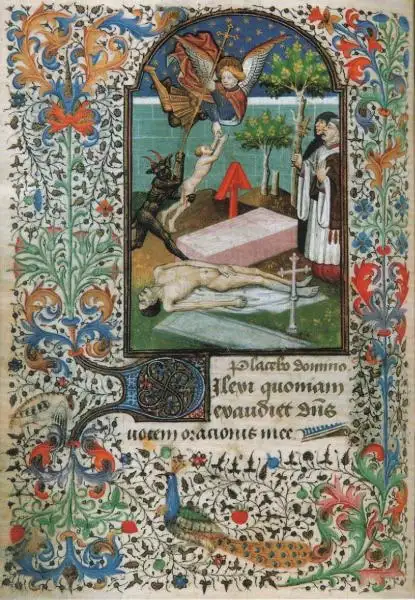 Placebo domino
Dilexi quoniam
exaudiet dn̄s
uocem oracionis mee